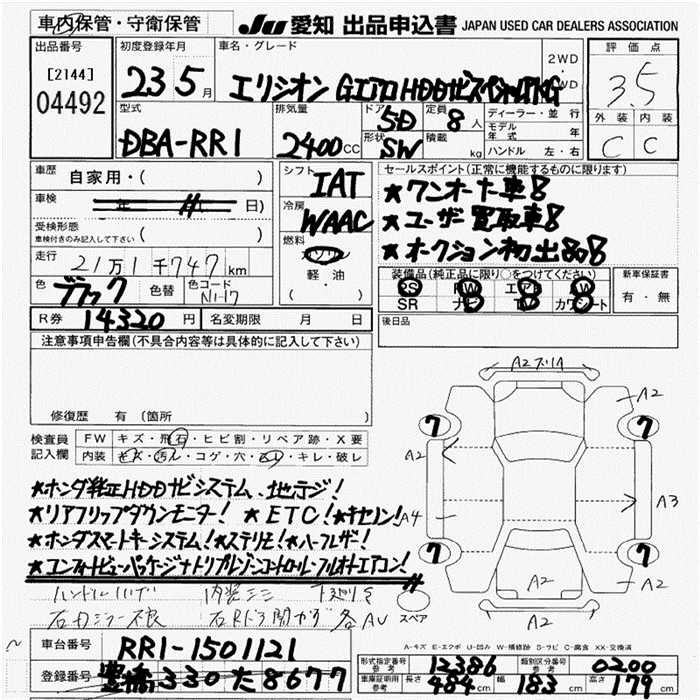 車内保管・守衛保管 JU 愛知 出品申込書 JAPAN USED CAR DEALERS ASSOCIATION
出品番号 初度登録年月 車名・グレード 2WD 評価点
[2144] 04492 23 5月 エリシオン 3.5
外装 内装
C C
型式 排気量 ドア 定員 ディーラー・並行
DBA-RR1 2400cc 5D 8人 モデル年式 年
形状 SW 積載 kg ハンドル 左・右
車歴 自家用・( ) シフト IAT セールスポイント(正常に機能するものに限ります)
車検 年 日) 冷房 WAAC ★ワンオーナー車!!
受検形態 ( ) ★ユーザー買取車!!
車検付きのみ記入して下さい 燃料 ガソリン ★オークション初出品!!
走行 21万1千747km 軽油
( ・ )
装備品(純正品に限り○をつけてください) 新車保証書
色 ブラック 色替 色コード NH-17 SR カワシート 有・無
R券 14320円 名変期限 月 日 後日品
注意事項申告欄(不具合内容等は具体的に記入して下さい)
修復歴 有 (箇所
検査員 FW キズ・飛石・ヒビ割・リペア跡・X要
記入欄 内装 キズ・汚レ・コゲ・穴・・キレ・破レ
★ホンダ純正HDDナビシステム、地デジ!
★リアフリップダウンモニター! ★ETC! ★キセノン!
★ホンダスマートキーシステム! ★ステリモ! ★ハーフレザー!
★コンフォートビューパッケージ トリプルゾーンコントロールフルオートエアコン!
ハンドルハゲ
右ドラ開かず 各AU
A2
A2
7 7
A2
A4 A3
7 7
A2 A2
A2
スペア
A-キズ E-エクボ U-凹み W-補修跡 S-サビ C-腐食 XX-交換済
車台番号 RR1-1501121
登録番号 豊橋 330 た 8677
形式指定番号 参考 12386 類別区分番号 参考 0200
車庫証明用 参考 長さ 484cm 幅 183cm 高さ 179cm